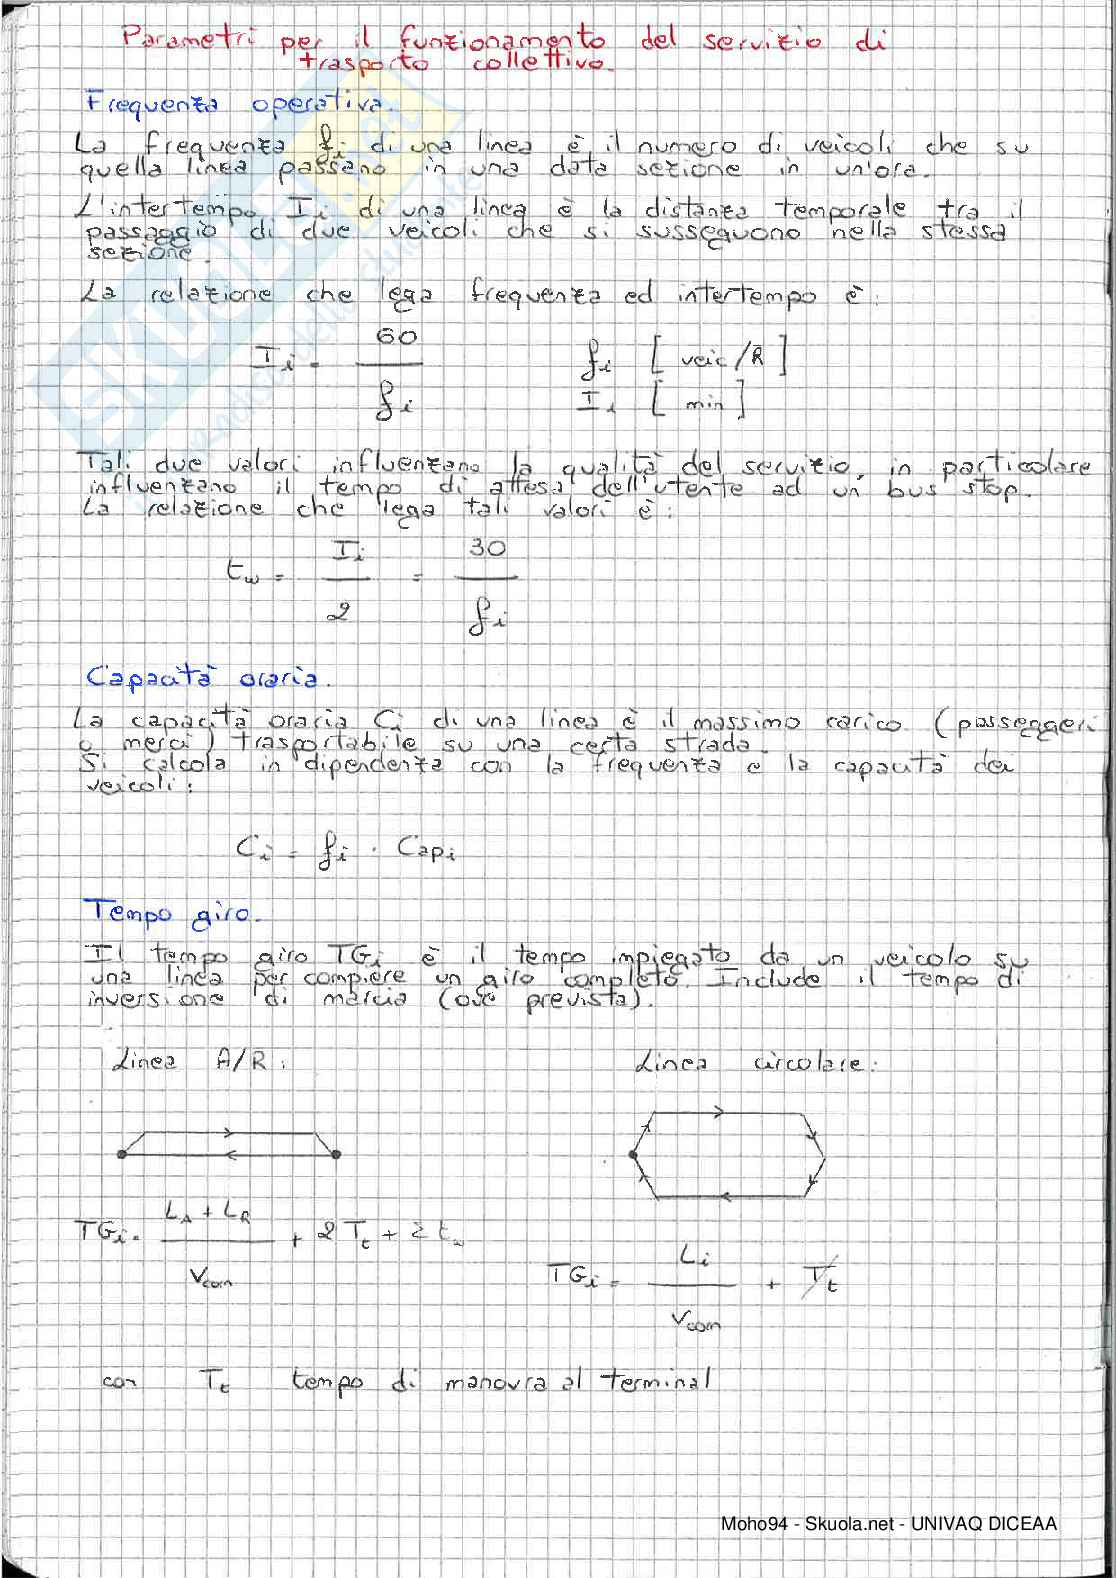 Parametri per il funzionamento del servizio di
trasporto collettivo.
Frequenza operativa.
La frequenza fi di una linea è il numero di veicoli che su
quella linea passano in una data sezione in un'ora.
L'intertempo Ii di una linea è la distanza temporale tra il
passaggio di due veicoli che si susseguono nella stessa
sezione.
La relazione che lega frequenza ed intertempo è:
Ii = 60 / fi
fi [veic/h]
Ii [min]
Tali due valori influenzano la qualità del servizio, in particolare
influenzano il tempo di attesa dell'utente ad un bus stop.
La relazione che lega tali valori è:
tw = Ii / 2 = 30 / fi
Capacità oraria.
La capacità oraria Ci di una linea è il massimo carico (passeggeri
o merci) trasportabile su una certa strada.
Si calcola in dipendenza con la frequenza e la capacità dei
veicoli:
Ci = fi · Capi
Tempo giro.
Il tempo giro TGi è il tempo impiegato da un veicolo su
una linea per compiere un giro completo. Include il tempo di
inversione di marcia (ove prevista).
Linea A/R:
Linea circolare:
TGi = (LA + LR) / Vcom + 2 Tt + 2 tw
TGi = Li / Vcom + Tt
con Tt tempo di manovra al terminal
Moho94 - Skuola.net - UNIVAQ DICEAA